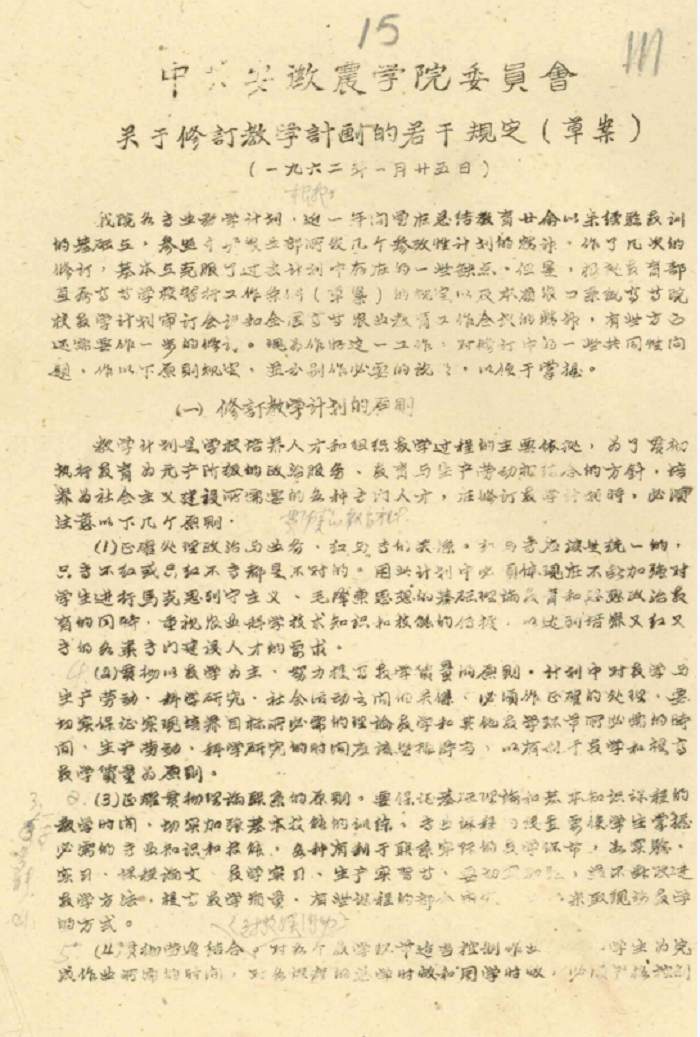 15
中共安徽農学院委員會
关于修訂教学計劃的若干規定（草案）
（一九六二年一月廿五日）
我院各专业教学计划，近一年间曾在总结教育革命以来经驗教训
的基础上，参照 农业部所发几个参改性计划的精神，作了几次的
修訂，基本上克服了过去计划中存在的一些缺点。但是，根据教育部
直属高等学校暂行工作条例（草案）的规定以及本省农口系统高等院
校教学计划审訂会议和全国高等农业教育工作会议的精神，有些方面
还需要作 一步的修订。现为作好这一工作，对修订中的一些共同性问
题，作以下原则规定，並分别作必要的说 ，以便于掌握。
（一）修訂教学计划的原則
教学计划是学校培养人才和组织教学过程的主要依据，为了贯彻
执行教育为无产阶级的政治服务、教育与生产劳动相结合的方針，培
养为社会主义建设所需要的各种专门人才，在修訂教学计划时，必須
注意以下几个原則。
(1)正確处理政治与业务、红与专的关係。红与专应该是统一的，
只专不红或只红不专都是不对的。 计划中必須体现在不断加強对
学生进行馬克思列宁主义、毛泽東思想的基础理論教育和 政治教
育的同时，重视农业科学技术知识和技能的传授，以达到培养又红又
专的各类专门建设人才的要求。
(2)贯彻以教学为主，努力提高教学質量的原则。计划中对教学与
生产劳动、科学研究、社会活动之间的关係，必須作正確的处理，要
切实保证实现培养目标所必需的理論教学和其他教学环节所必需的时
间，生产劳动、科学研究的时间应该安排得当，以有利于教学和提高
教学質量为原则。
(3)正確贯彻理論联系的原则。要保证基础理論和基本知识课程的
教学时间，切实加强基本技能的训练。专业课程的设置要使学生掌握
必需的专业知识和技能，各种有利于联系实际的教学环节，如实驗、
实习、课程論文、教学实习、生产实习等，要切实 ，並不断改进
教学方法，提高教学質量，有些课程的部分内容 采取现场教学
的方式。
(4)贯彻劳逸结合 对各个教学环节适当控制 学生为完
成作业所需的时间，对各课程的总学时数和周学时数，必須 控制